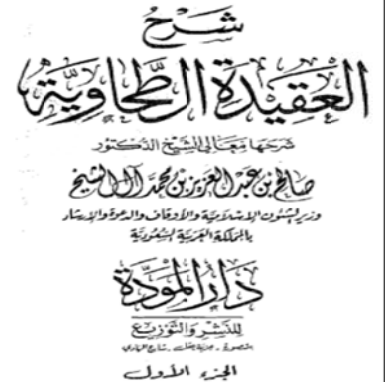 شرح
العقيدة الطحاوية
شرحها معالي الشيخ الدكتور
صالح بن عبد العزيز بن محمد آل الشيخ
وزير الشئون الإسلامية والأوقاف والدعوة والإرشاد
بالمملكة العربية السعودية
دار المودة
للنشر والتوزيع
المنصورة - عزبة عقل - شارع الهادي
الجزء الأول